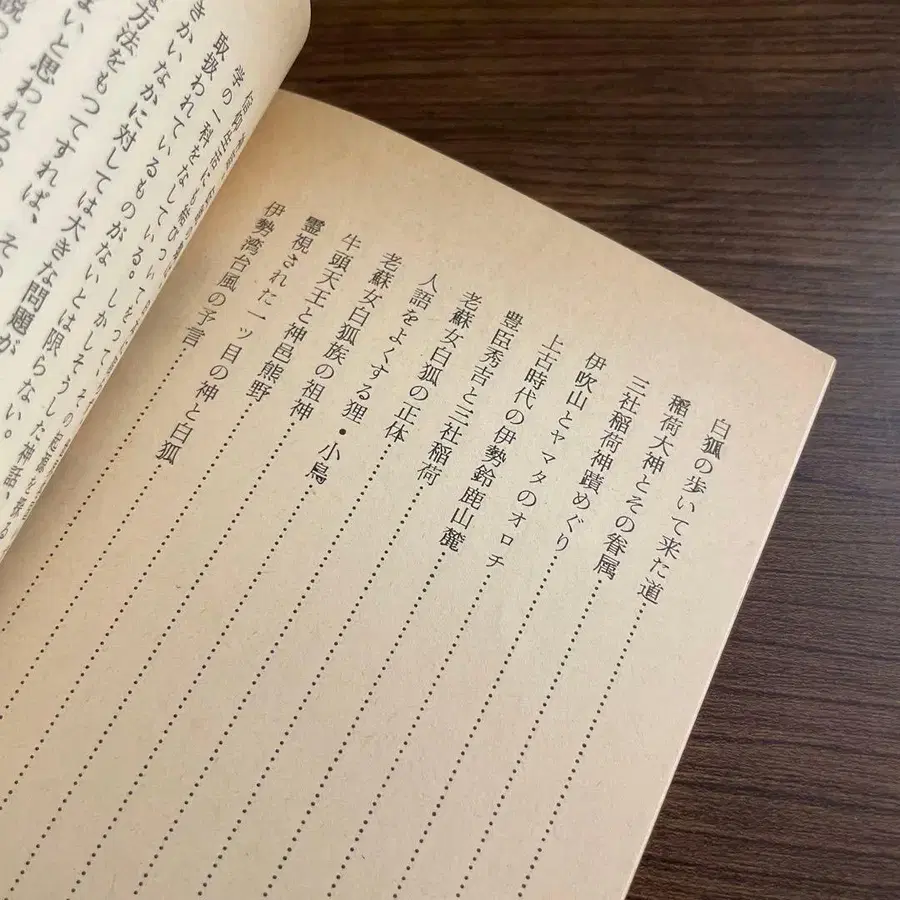 白狐の歩いて来た道
稲荷大神とその眷属
三社稲荷神蹟めぐり
伊吹山とヤマタのオロチ
上古時代の伊勢鈴鹿山麓
豊臣秀吉と三社稲荷
老蘇女白狐の正体
人語をよくする狸・小鳥
老蘇女白狐族の祖神
牛頭天王と神邑熊野
霊視された一ツ目の神と白狐
伊勢湾台風の予言
学の一科をなしている。
取扱われているものがないとは限らない。しかしそうした神話、
きかいなかに対しては大きな問題が
な方法をもつてすれば、その
いと思われる